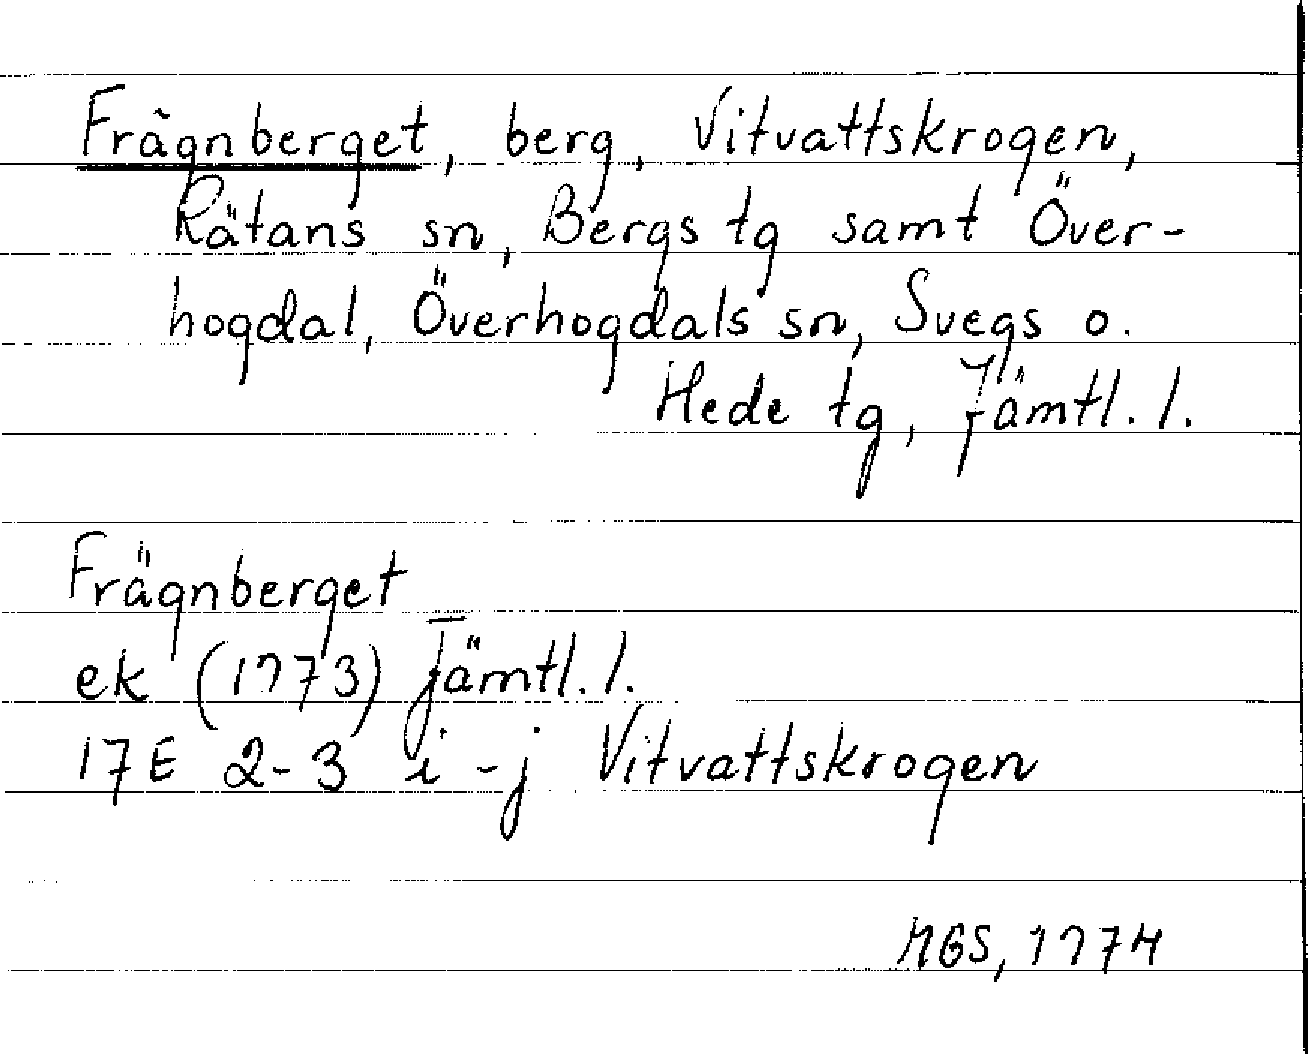 Frägnberget, berg, Vitvattskrogen,
Rätans sn, Bergs tg samt Över-
hogdal, Överhogdals sn, Svegs o.
Hede tg, Jämtl. l.
Frägnberget
ek (1973) Jämtl. l.
17E 2-3 i-j Vitvattskrogen
MGS, 1974